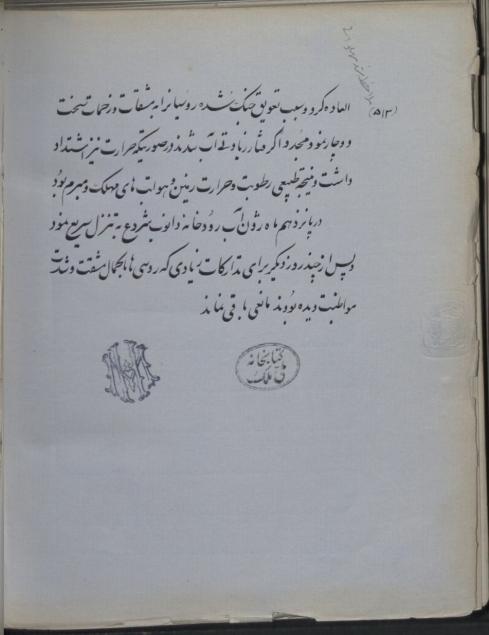 (۵۱۳)
العاده کرد و سبب تعویق جنک شده روسیانرا به مشقات و زحمات سخت
دوچار نمود و مجددا گرفتار زیادتی آب شدند در صورتیکه حرارت نیز اشتداد
داشت و نتیجه طبیعی رطوبت و حرارت زمین و هوا تب های مهلک و مبرم بود
در پانزدهم ماه ژون آب رودخانه دانوب شروع به تنزل سریع نمود
و پس از چند روز دیگر برای تدارکات زیادی که روسی ها با کمال مشقت و شدت
مواظبت دیده بودند مانعی باقی نماند
کتابخانه
ملی ملک